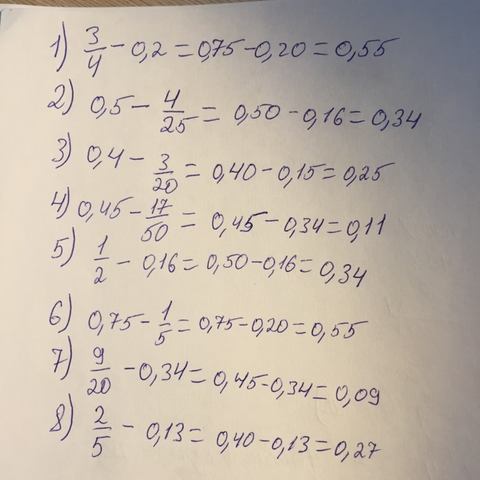 1) 3/4 - 0,2 = 0,75 - 0,20 = 0,55
2) 0,5 - 4/25 = 0,50 - 0,16 = 0,34
3) 0,4 - 3/20 = 0,40 - 0,15 = 0,25
4) 0,45 - 17/50 = 0,45 - 0,34 = 0,11
5) 1/2 - 0,16 = 0,50 - 0,16 = 0,34
6) 0,75 - 1/5 = 0,75 - 0,20 = 0,55
7) 9/20 - 0,34 = 0,45 - 0,34 = 0,09
8) 2/5 - 0,13 = 0,40 - 0,13 = 0,27